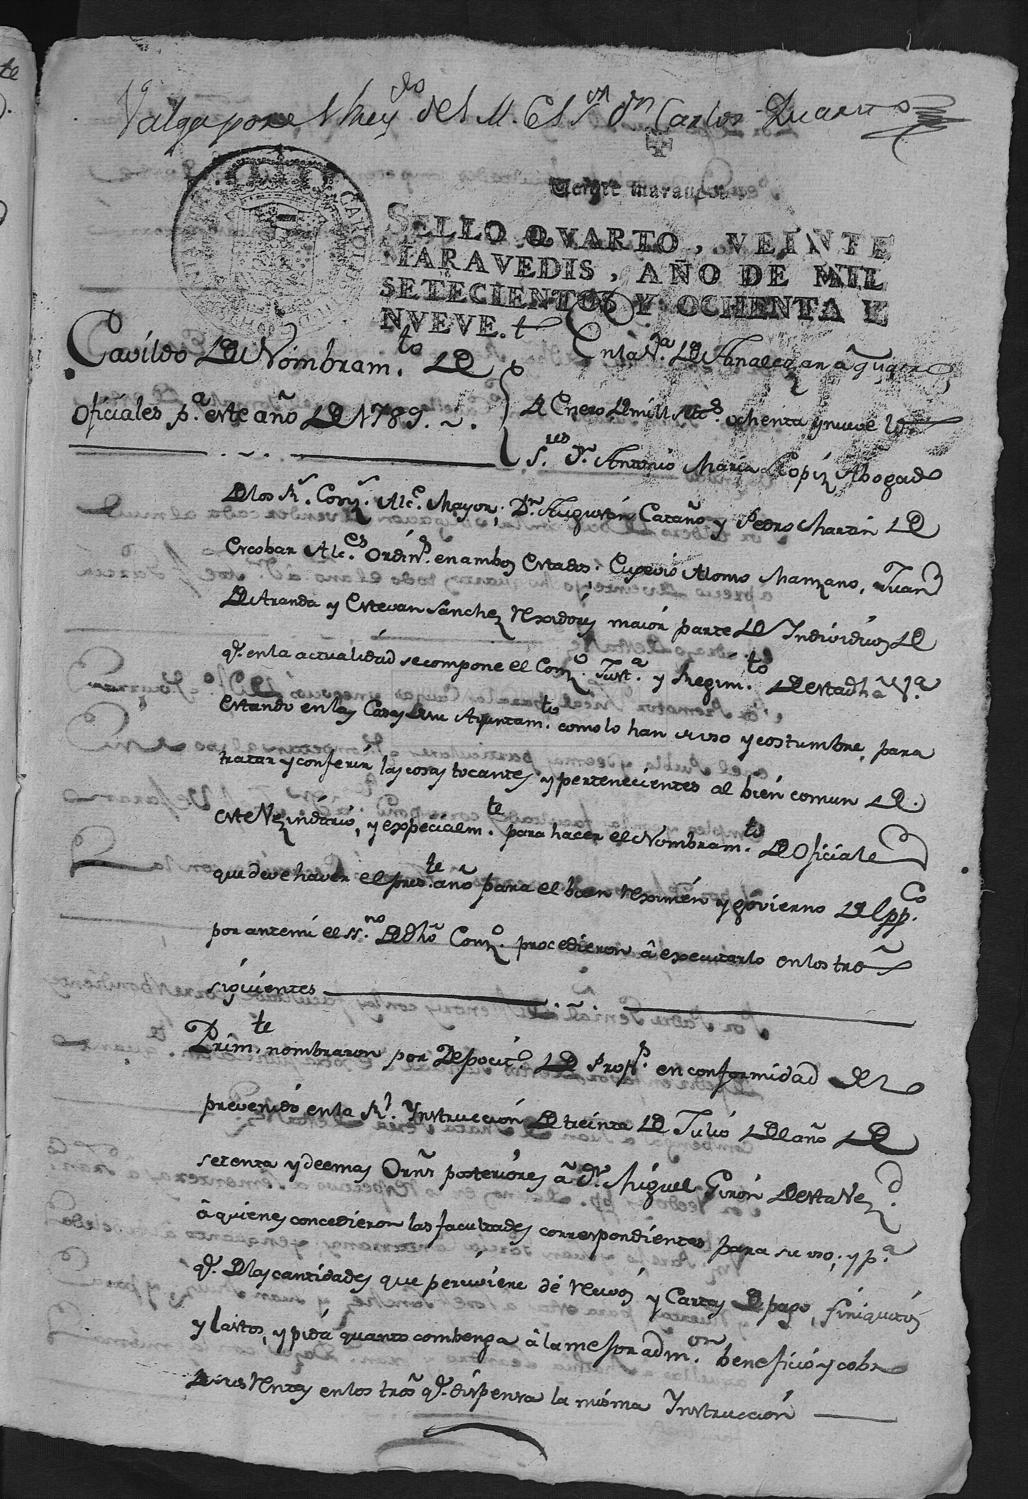 Valga por el Rey.do del S.r d.n Carlos Quarto
Veinte maraved
SELLO QVARTO, VEINTE
MARAVEDIS, AÑO DE MIL
SETECIENTOS Y OCHENTA E
NVEVE.
Cavildo de Nombram.to de
Oficiales p.a este año de 1789.
En la V.a de Aznalcazar â
de Enero de mill set.s ochenta y nueve los
S.res D.n Antonio Maria Lopiz Abogado
de los R.s Cons.s Alc.e Mayor; D.n Augustin Cataño y Pedro Martin de
Escobar Alc.es Ordin.s en ambos Estados: Eugenio Alonso Manzano, Juan
de Aranda y Estevan Sanchez Rexidores maior parte de Individuos de
q.e en la actualidad se compone el Conz.o Just.a y Regim.to de esta dha V.a
estando en las Casas de su Ayuntam.to como lo han de uso y costumbre, para
tratar y conferir las cosas tocantes y pertenecientes al bien comun de
este Vezindario, y expecialm.te para hacer el Nombram.to de Oficiales
que deve haver el pres.te año para el buen reximen y govierno del pp.co
por ante mi el ss.no de dho Conz.o procedieron â executarlo en los tros
siguientes
Prim.te nombraron por Deposit.o de Prop.s en conformidad de lo
prevenido en la R.l Ynstruccion de treinta de Julio del año de
setenta y demas Orns posteriores â D.n Miguel Giron de esta Vez.d
â quienes concedieron las facultades correspondientes para su uso, y p.a
q.e de las cantidades que perciviere dé recivos y Cartas de pago, finiquitos
y lastos, y pida quanto combenga â la mejor adm.on beneficio y cobro
de sus rentas en los tros q.e dispensa la misma Ynstruccion